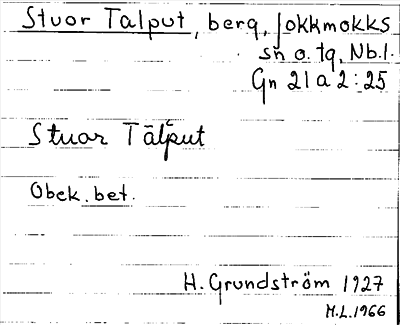 Stuor Talput, berg, Jokkmokks
sn o. tg, Nb.l.
Gn 21 a 2:25
Stuor Tālˈput
Obek. bet.
H. Grundström 1927
M.L. 1966